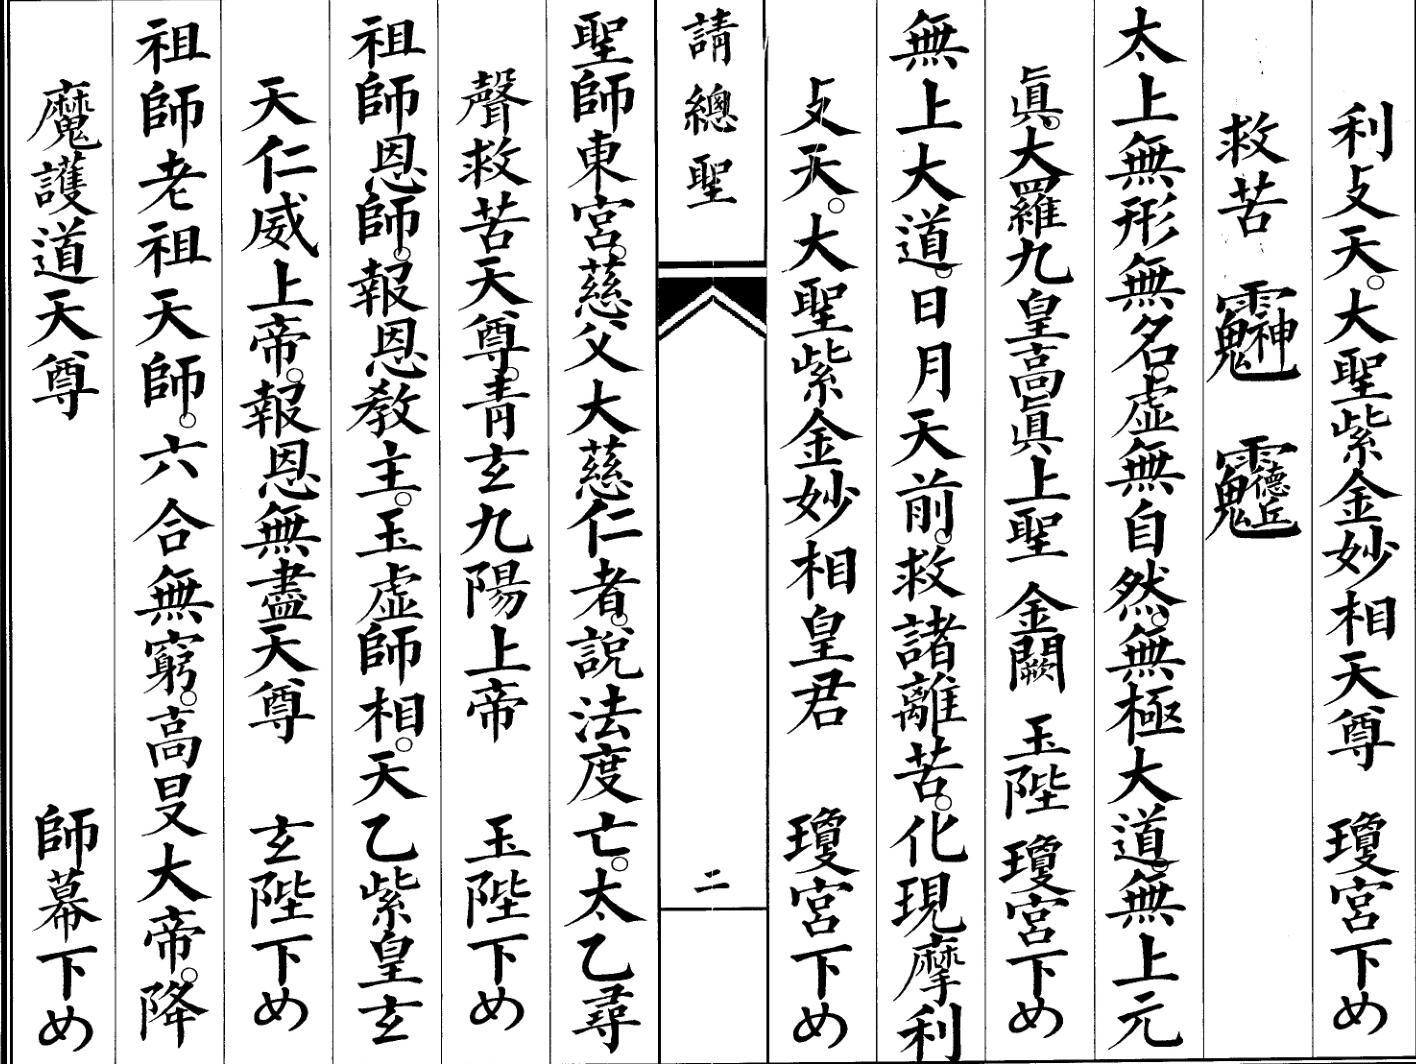 利攴天。大聖紫金妙相天尊　瓊宮下め
救苦
太上無形無名。虛無自然。無極大道。無上元
眞。大羅九皇高眞上聖　金闕　玉陛　瓊宮下め
無上大道。日月天前。救諸離苦。化現摩利
攴天。大聖紫金妙相皇君　瓊宮下め
請總聖　二
聖師東宮。慈父大慈仁者。說法度亡。太乙尋
聲救苦天尊。青玄九陽上帝　玉陛下め
祖師恩師。報恩教主。玉虛師相。天乙紫皇玄
天仁威上帝。報恩無盡天尊　玄陛下め
祖師老祖天師。六合無窮。高旻大帝。降
魔護道天尊　師幕下め